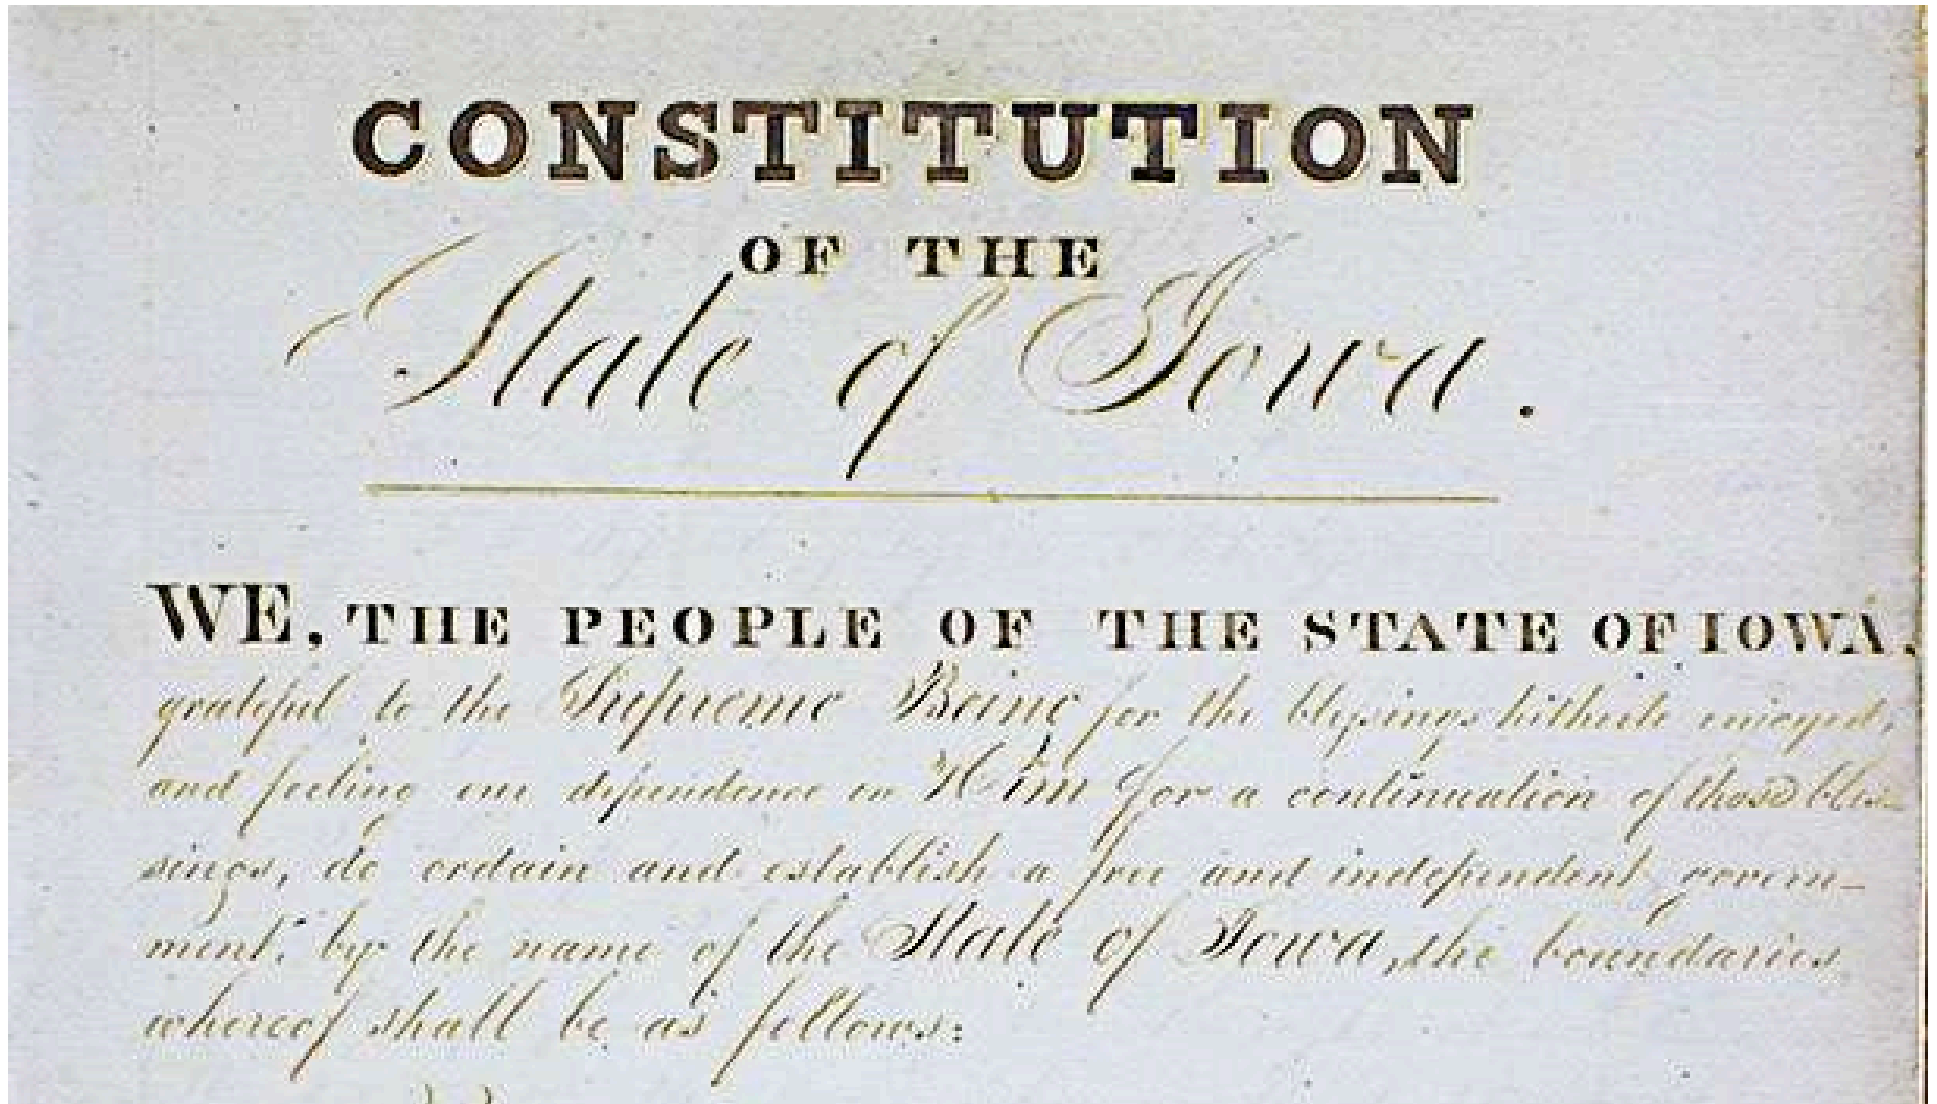 CONSTITUTION
OF THE
State of Iowa.
WE, THE PEOPLE OF THE STATE OF IOWA,
grateful to the Supreme Being for the blessings hitherto enjoyed,
and feeling our dependence on Him for a continuation of those bles-
sings, do ordain and establish a free and independent govern-
ment, by the name of the State of Iowa, the boundaries
whereof shall be as follows: